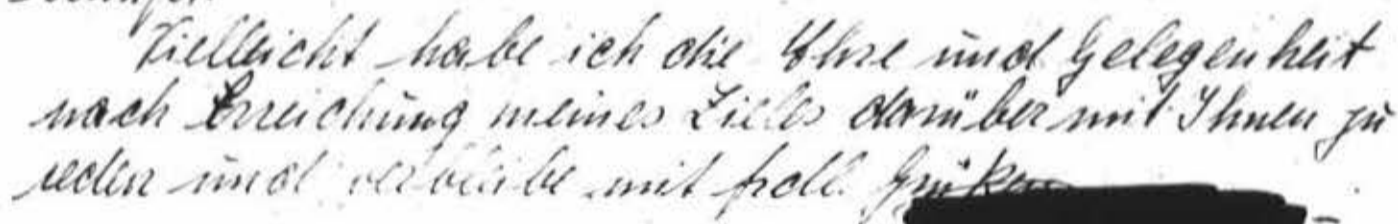 Vielleicht habe ich die Ehre und Gelegenheit
nach Erreichung meines Zieles darüber mit Ihnen zu
reden und verbleibe mit frdll. Grüßen